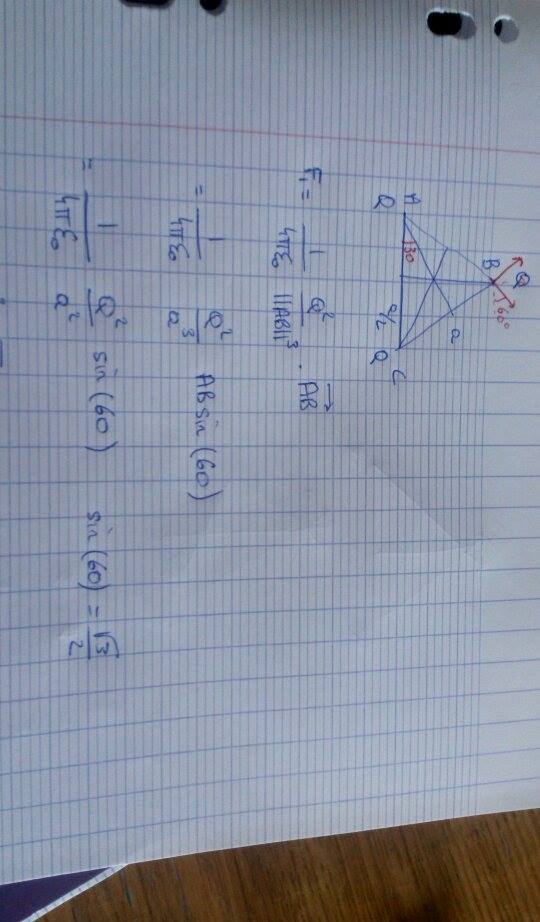 Q
B
60°
a
A
30
a/2
Q
Q
C
F₁ = 1/4πε₀ Q²/||AB||³ · \overrightarrow{AB}
= 1/4πε₀ Q²/a³ AB sin(60)
= 1/4πε₀ Q²/a² sin(60) sin(60) = √3/2